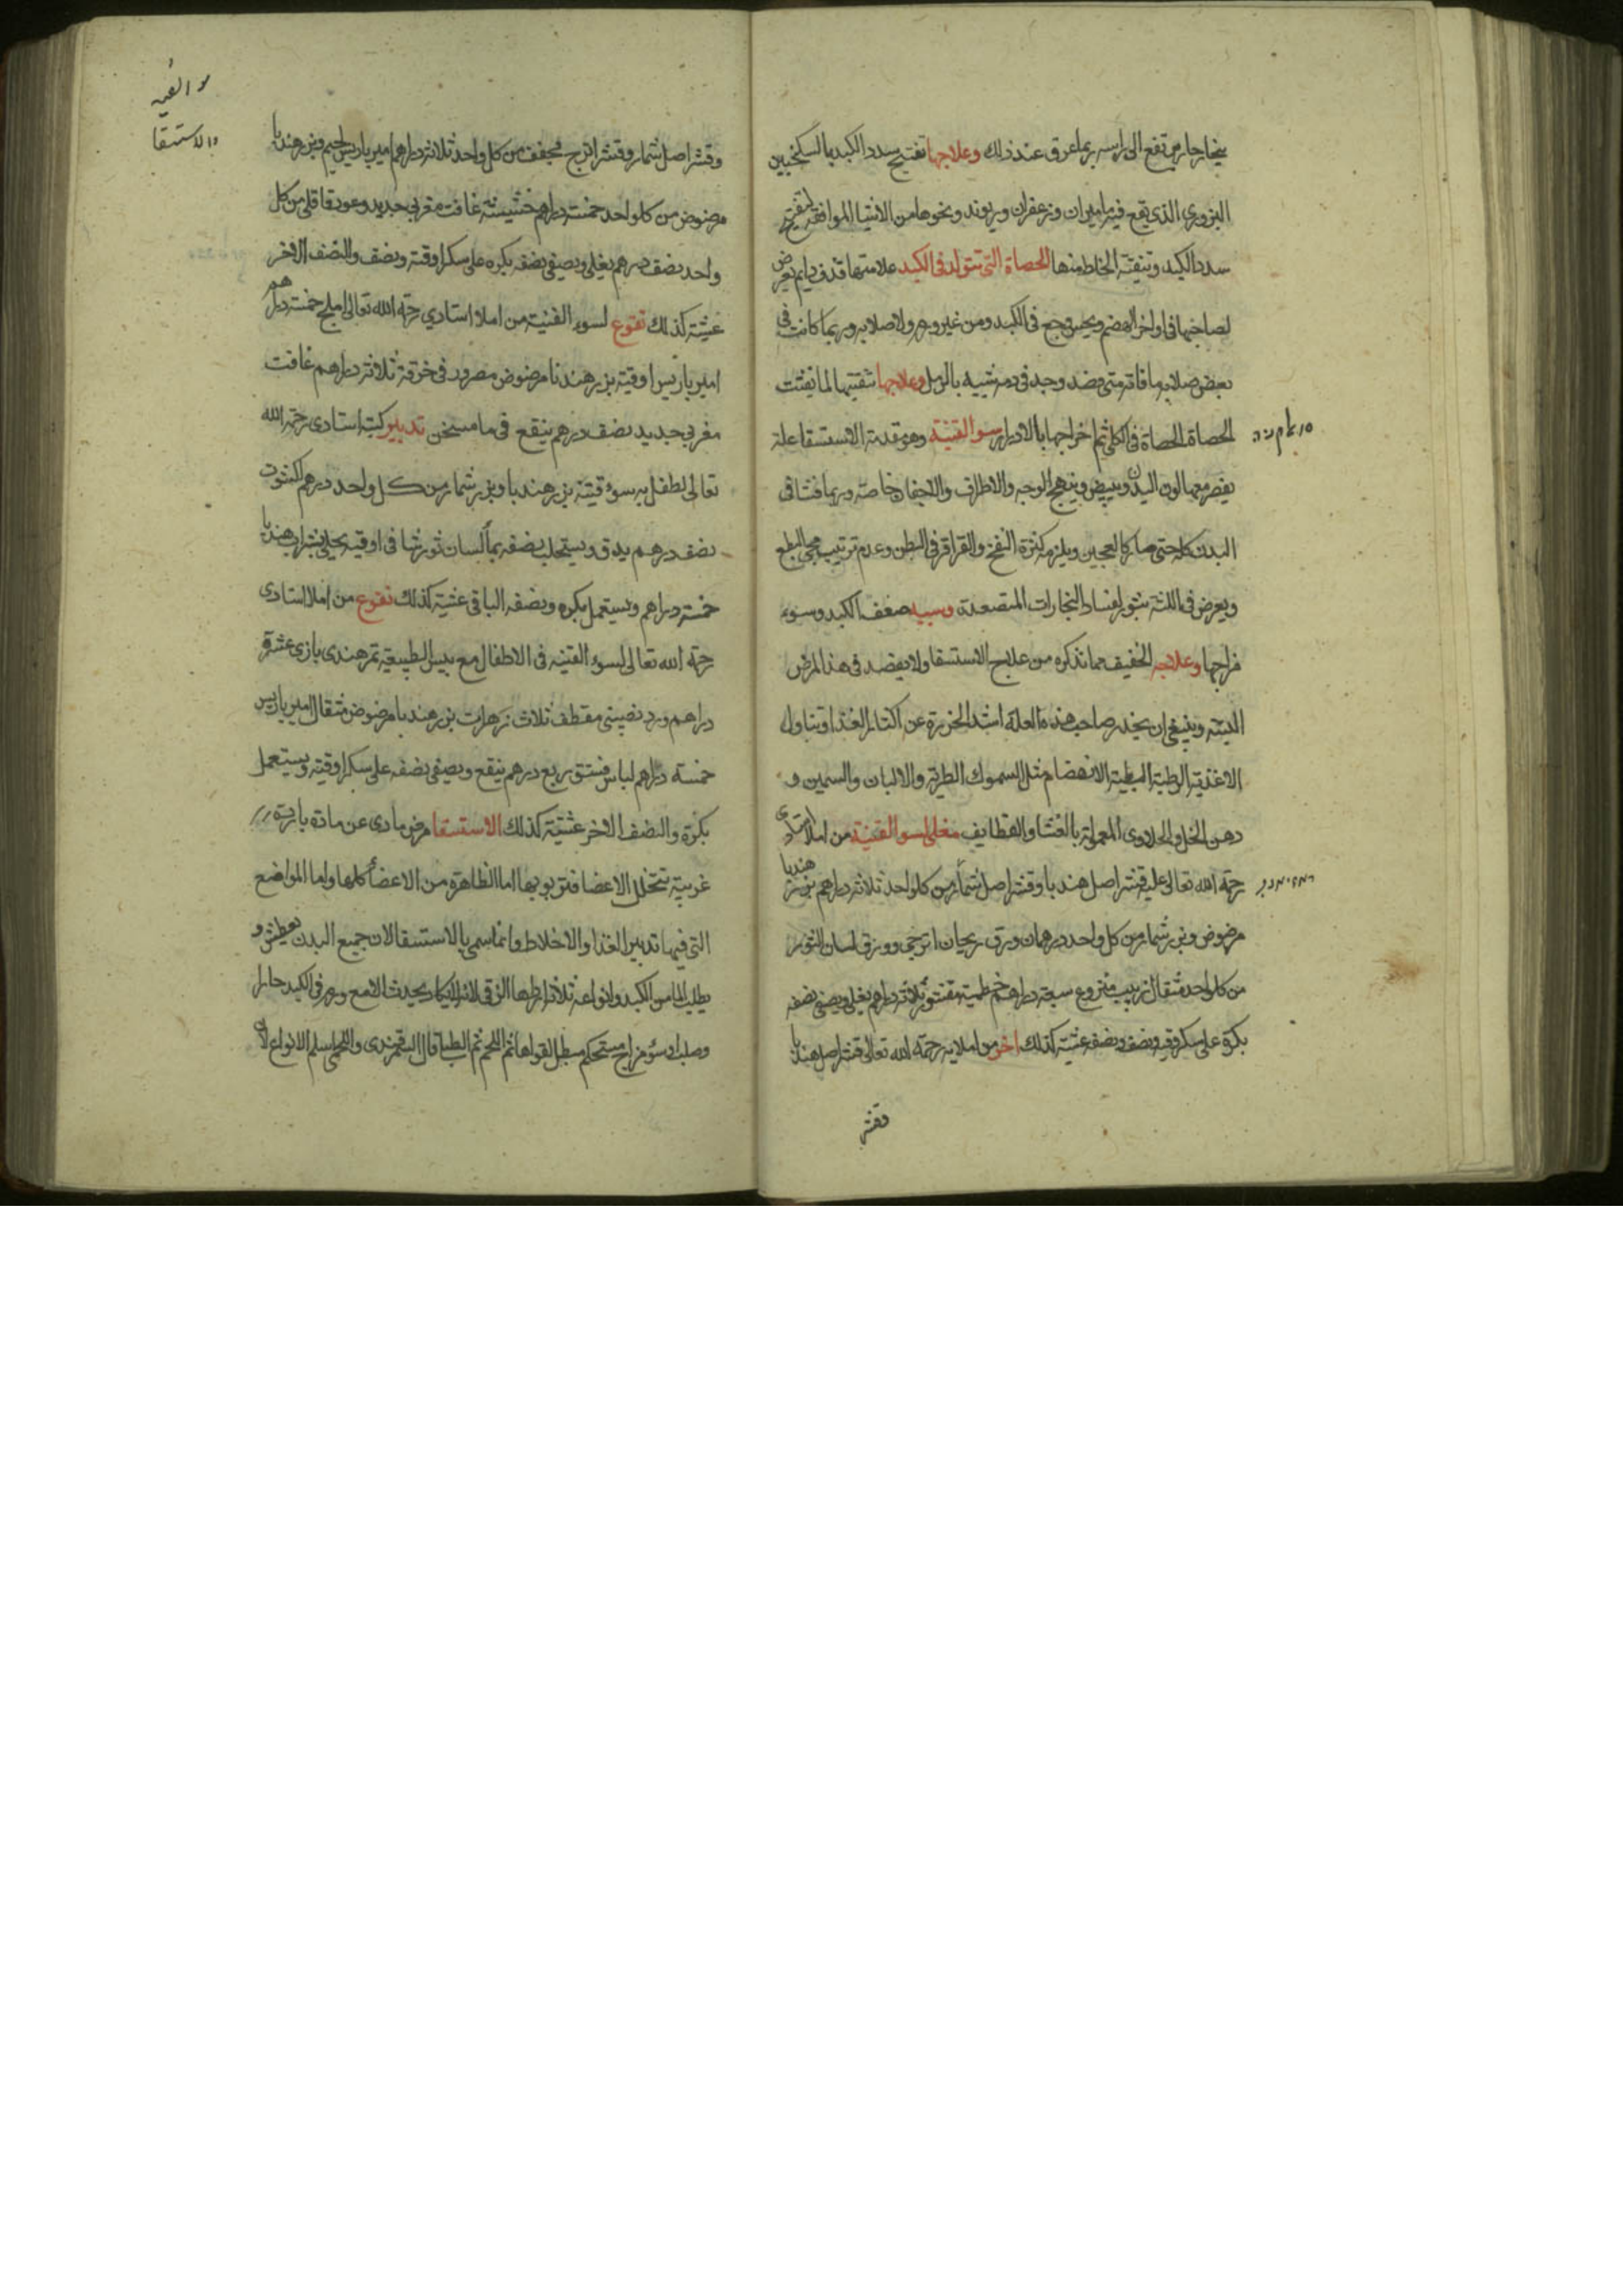 بخار حار يرتفع الى راسه ربما عرق عند ذلك وعلاجها تفتيح سدد الكبد بالسكنجبين
البزوري الذي يقع فيه ماميران وزعفران وريوند ونحوها من الاشيا الموافقة لتفتيح
سدد الكبد وتنقية الخلط منها الحصاة التي تتولد في الكبد علامتها قذف دايم يعرض
لصاحبها في اواخر الهضم ويحس بوجع في الكبد ومن غير ورم ولا صلابه وربما كانت في
بعض صلابه ما فانه متى فصد وجد في دمه شبيه بالرمل وعلاجها تنقيتها لما يفتت
الحصاة الحصاة في الكلى ثم اخراجها بالادرار سو القنية وهو مقدمة الاستسقا علة
يفر معها لون البدن ويبيض ويتهيج الوجه والاطراف والاجفان خاصة وربما فشا في
البدن كله حتى صار كالعجين ويلزمه كثرة النفخ والقراقر في البطن وعدم ترتيب مجي الطبع
ويعرض في اللثة بثور لفساد البخارات المتصعدة وسببه ضعف الكبد وسوء
مزاجها وعلاجه الخفيف مما نذكره من علاج الاستسقا ولا يفصد في هذا المرض
البتة وينبغي ان يحذر صاحب هذه العلة اشد الحذر عن اكثار الغذا وتناول
الاغذية الرطبة البطية الانهضام مثل السموك الطرية والالبان والسمين و
دهن الخل والحلاوى المعمولة بالنشا والقطايف مغلى لسو القنية من املا استادي
رحمة الله تعالى عليه قشر اصل هندبا وقشر اصل شمار من كل واحد ثلاثة دراهم بزر هندبا
مرضوض وبزر شمار من كل واحد درهمان ورق ريحان اترجي وورق لسان الثور
من كل واحد مثقال زبيب منزوع سبعة دراهم خطمية مقشور ثلاثة دراهم يغلى ويصفى نصفه
بكرة على سكر وقيه ونصف ونصفه عشية كذلك اخر من املايه رحمه الله تعالى قشر اصل هندبا
وقشر
سو القنيه
والاستسقا
وقشر اصل شمار وقشر اترج مجفف من كل واحد ثلاثة دراهم امير باريس لحيم وبزر هندبا
مرضوض من كل واحد خمسة دراهم حشيشة غافت مغربي جديد وعود قاقلى من كل
واحد نصف درهم يغلى ويصفى نصفه بكره على سكر اوقية ونصف والنصف الاخر
عشية كذلك نقوع لسوء القنية من املا استادي رحمه الله تعالى املج خمسة دراهم
امير باريس اوقية بزر هندبا مرضوض مصرور في خرقة ثلاثة دراهم غافت
مغربي جديد نصف درهم ينقع في ما مسخن تدبير كتبه استادى رحمه الله
تعالى لطفل به سوء قنية بزر هندبا وبزر شمار من كل واحد درهم اكشوت
نصف درهم يدق ويستحلب نصفه بما لسان ثور في اوقيه يحلى بشراب هندبا
خمسة دراهم ويستعمل بكره ونصفه الباقي عشية كذلك نقوع من املا استادى
رحمه الله تعالى لسوء القنيه في الاطفال مع يبس الطبيعة تمر هندى بازى عشرة
دراهم ورد نصيبي مقطف ثلاث زهرات بزر هندبا مرضوض مثقال امير باريس
خمسة دراهم لباس فستق ربع درهم ينقع ويصفى نصفه على سكر اوقية ويستعمل
بكرة والنصف الاخر عشية كذلك الاستسقا مرض مادى عن مادة باردة
غريبة تتخلل الاعضا فتربو بها اما الظاهرة من الاعضا كلها واما المواضع
التي فيها تدبير الغذا والاخلاط وانما سمي بالاستسقا لان جميع البدن يعطش و
يطلب الما من الكبد وانواعه ثلاثة اردها الزقي لانه لا يكاد يحدث الا مع ورم في الكبد حار
وصلب او سؤ مزاج مستحكم مبطل لقواها ثم اللحمي ثم الطبلي قال السمرقندى واللحمي اسلم الانواع لان